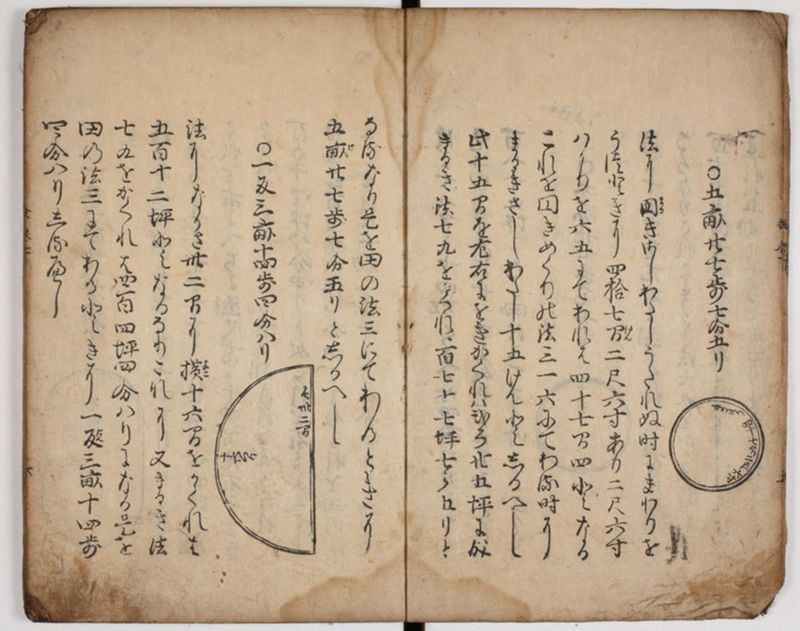 〇五畝廿七歩七分五り
法に圓きさしわたしうたれぬ時にまわりを
うつ也ときに四拾七間二尺六寸あり二尺六寸
はかりを六五にてわれは四十七間四也となる
これを圓きめくりの法三一六にてわる時に
まるきさしわたし十五けん也としるへし
此十五間を左右にをきかくれは廿五坪に成
まるき法七九をかくれ百七十七坪七分五りと
なるなり是を田の法三にてわるときに
五畝廿七歩七分五りとしるへし
〇一反三畝十四歩四分八り
卅二間
法にながさ卅二間に横十六間をかくれは
五百十二坪也となるなりこれに又まるき法
七九をかくれは四百四坪四分八りになる是を
田の法三にてわる也ときに一段三畝十四歩
四分八りとしるへし